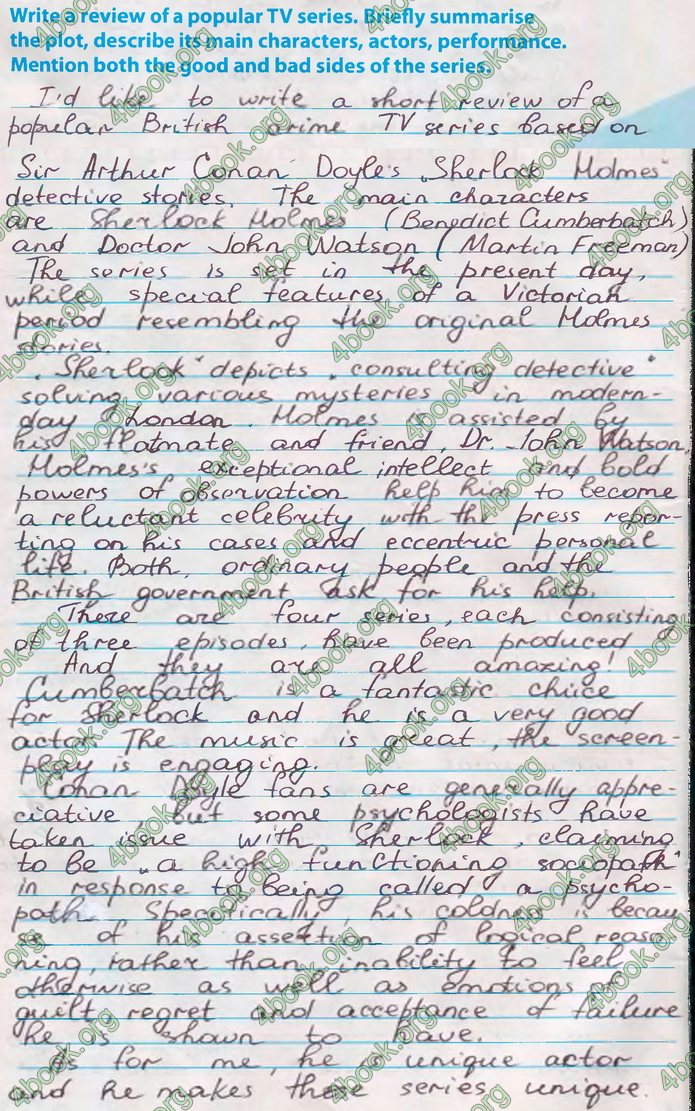 Write a review of a popular TV series. Briefly summarise
the plot, describe its main characters, actors, performance.
Mention both the good and bad sides of the series.
I'd like to write a short review of a
popular British crime TV series based on
Sir Arthur Conan Doyle's „Sherlock Holmes"
detective stories. The main characters
are Sherlock Holmes (Benedict Cumberbatch)
and Doctor John Watson (Martin Freeman)
The series is set in the present day,
while special features of a Victorian
period resembling the original Holmes
stories.
„Sherlock" depicts „consulting detective"
solving various mysteries in modern-
day London. Holmes is assisted by
his flatmate and friend, Dr. John Watson.
Holmes's exceptional intellect and bold
powers of observation help him to become
a reluctant celebrity with the press repor-
ting on his cases and eccentric personal
life. Both, ordinary people and the
British government ask for his help.
There are four series, each consisting
of three episodes, have been produced
And they are all amazing!
Cumberbatch is a fantastic choice
for Sherlock and he is a very good
actor. The music is great, the screen-
play is engaging.
Conan Doyle fans are generally appre-
ciative, but some psychologists have
taken issue with Sherlock, claiming
to be „a high functioning sociopath"
in response to being called a psycho-
path. Specifically, his coldness is becau
se of his assertion of logical reaso
ning, rather than inability to feel
otherwise as well as emotions of
guilt regret and acceptance of failure
he is shown to have.
As for me, he is unique actor
and he makes these series unique.
4book.org